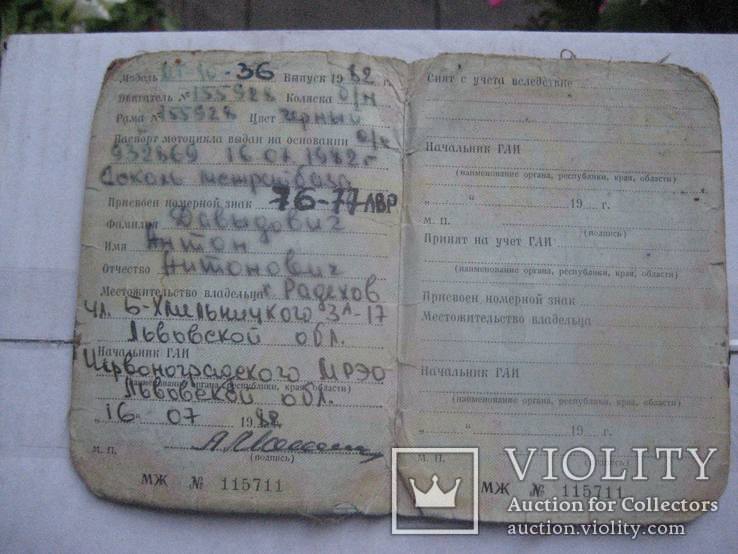 Модель МТ-10-36 Выпуск 1982 г.
Двигатель № 155928 Коляска б/н
Рама № 155928 Цвет черный
Паспорт мотоцикла выдан на основании с/с
932869 16.07.1982 г
Сокаль
Присвоен номерной знак 76-77 ЛВР
Фамилия Давыдович
Имя Антон
Отчество Антонович
Местожительство владельца г. Радехов
ул. Б-Хмельницкого 3А-17
Львовской обл.
Начальник ГАИ
Червоноградского МРЭО
(наименование органа, республики, края, области)
Львовской обл.
„16“ 07 1982
М. П.
(подпись)
МЖ № 115711
Снят с учета вследствие
Начальник ГАИ
(наименование органа, республики, края, области)
„ “ 19 г.
М. П. (подпись)
Принят на учет ГАИ
(наименование органа, республики, края, области)
Присвоен номерной знак
Местожительство владельца
Начальник ГАИ
(наименование органа, республики, края, области)
„ “ 19 г.
М. П.
МЖ № 115711
VIOLITY
Auction for Collectors
auction.violity.com